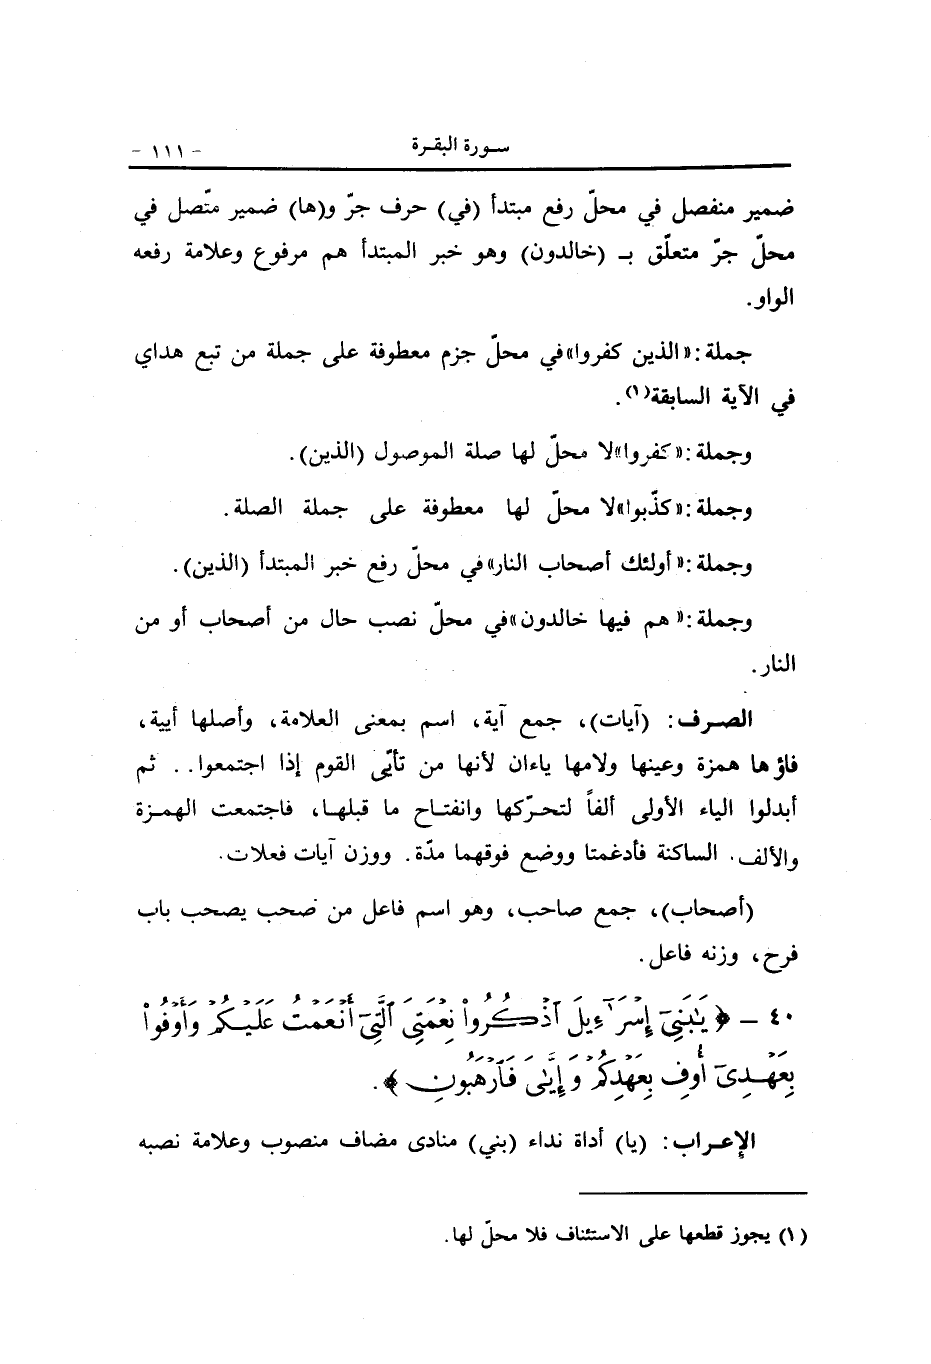 سورة البقرة - ١١١ -
ضمير منفصل في محلّ رفع مبتدأ (في) حرف جرّ و(ها) ضمير متّصل في
محلّ جرّ متعلّق بـ (خالدون) وهو خبر المبتدأ هم مرفوع وعلامة رفعه
الواو.
جملة: «الذين كفروا» في محلّ جزم معطوفة على جملة من تبع هداي
في الآية السابقة(١).
وجملة: «كفروا» لا محلّ لها صلة الموصول (الذين).
وجملة: «كذّبوا» لا محلّ لها معطوفة على جملة الصلة.
وجملة: «أولئك أصحاب النار» في محلّ رفع خبر المبتدأ (الذين).
وجملة: «هم فيها خالدون» في محلّ نصب حال من أصحاب أو من
النار.
الصرف: (آيات)، جمع آية، اسم بمعنى العلامة، وأصلها أيية،
فاؤها همزة وعينها ولامها ياءان لأنها من تأيّى القوم إذا اجتمعوا.. ثم
أبدلوا الياء الأولى ألفاً لتحرّكها وانفتاح ما قبلها، فاجتمعت الهمزة
والألف. الساكنة فأدغمتا ووضع فوقهما مدّة. ووزن آيات فعلات.
(أصحاب)، جمع صاحب، وهو اسم فاعل من صحب يصحب باب
فرح، وزنه فاعل.
٤٠ - ﴿يَٰبَنِىٓ إِسْرَٰٓءِيلَ ٱذْكُرُوا۟ نِعْمَتِىَ ٱلَّتِىٓ أَنْعَمْتُ عَلَيْكُمْ وَأَوْفُوا۟
بِعَهْدِىٓ أُوفِ بِعَهْدِكُمْ وَإِيَّٰىَ فَٱرْهَبُونِ﴾.
الإعراب: (يا) أداة نداء (بني) منادى مضاف منصوب وعلامة نصبه
(١) يجوز قطعها على الاستئناف فلا محلّ لها.